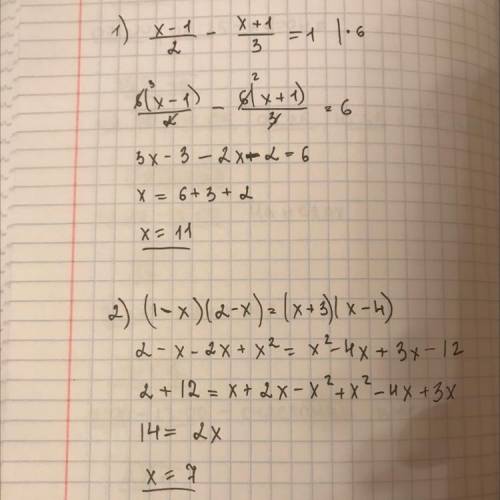 1) (x-1)/2 - (x+1)/3 = 1 | · 6
6(x-1)/2 - 6(x+1)/3 = 6
3 2
3x - 3 - 2x - 2 = 6
x = 6 + 3 + 2
x = 11
2) (1-x)(2-x) = (x+3)(x-4)
2 - x - 2x + x² = x² - 4x + 3x - 12
2 + 12 = x + 2x - x² + x² - 4x + 3x
14 = 2x
x = 7